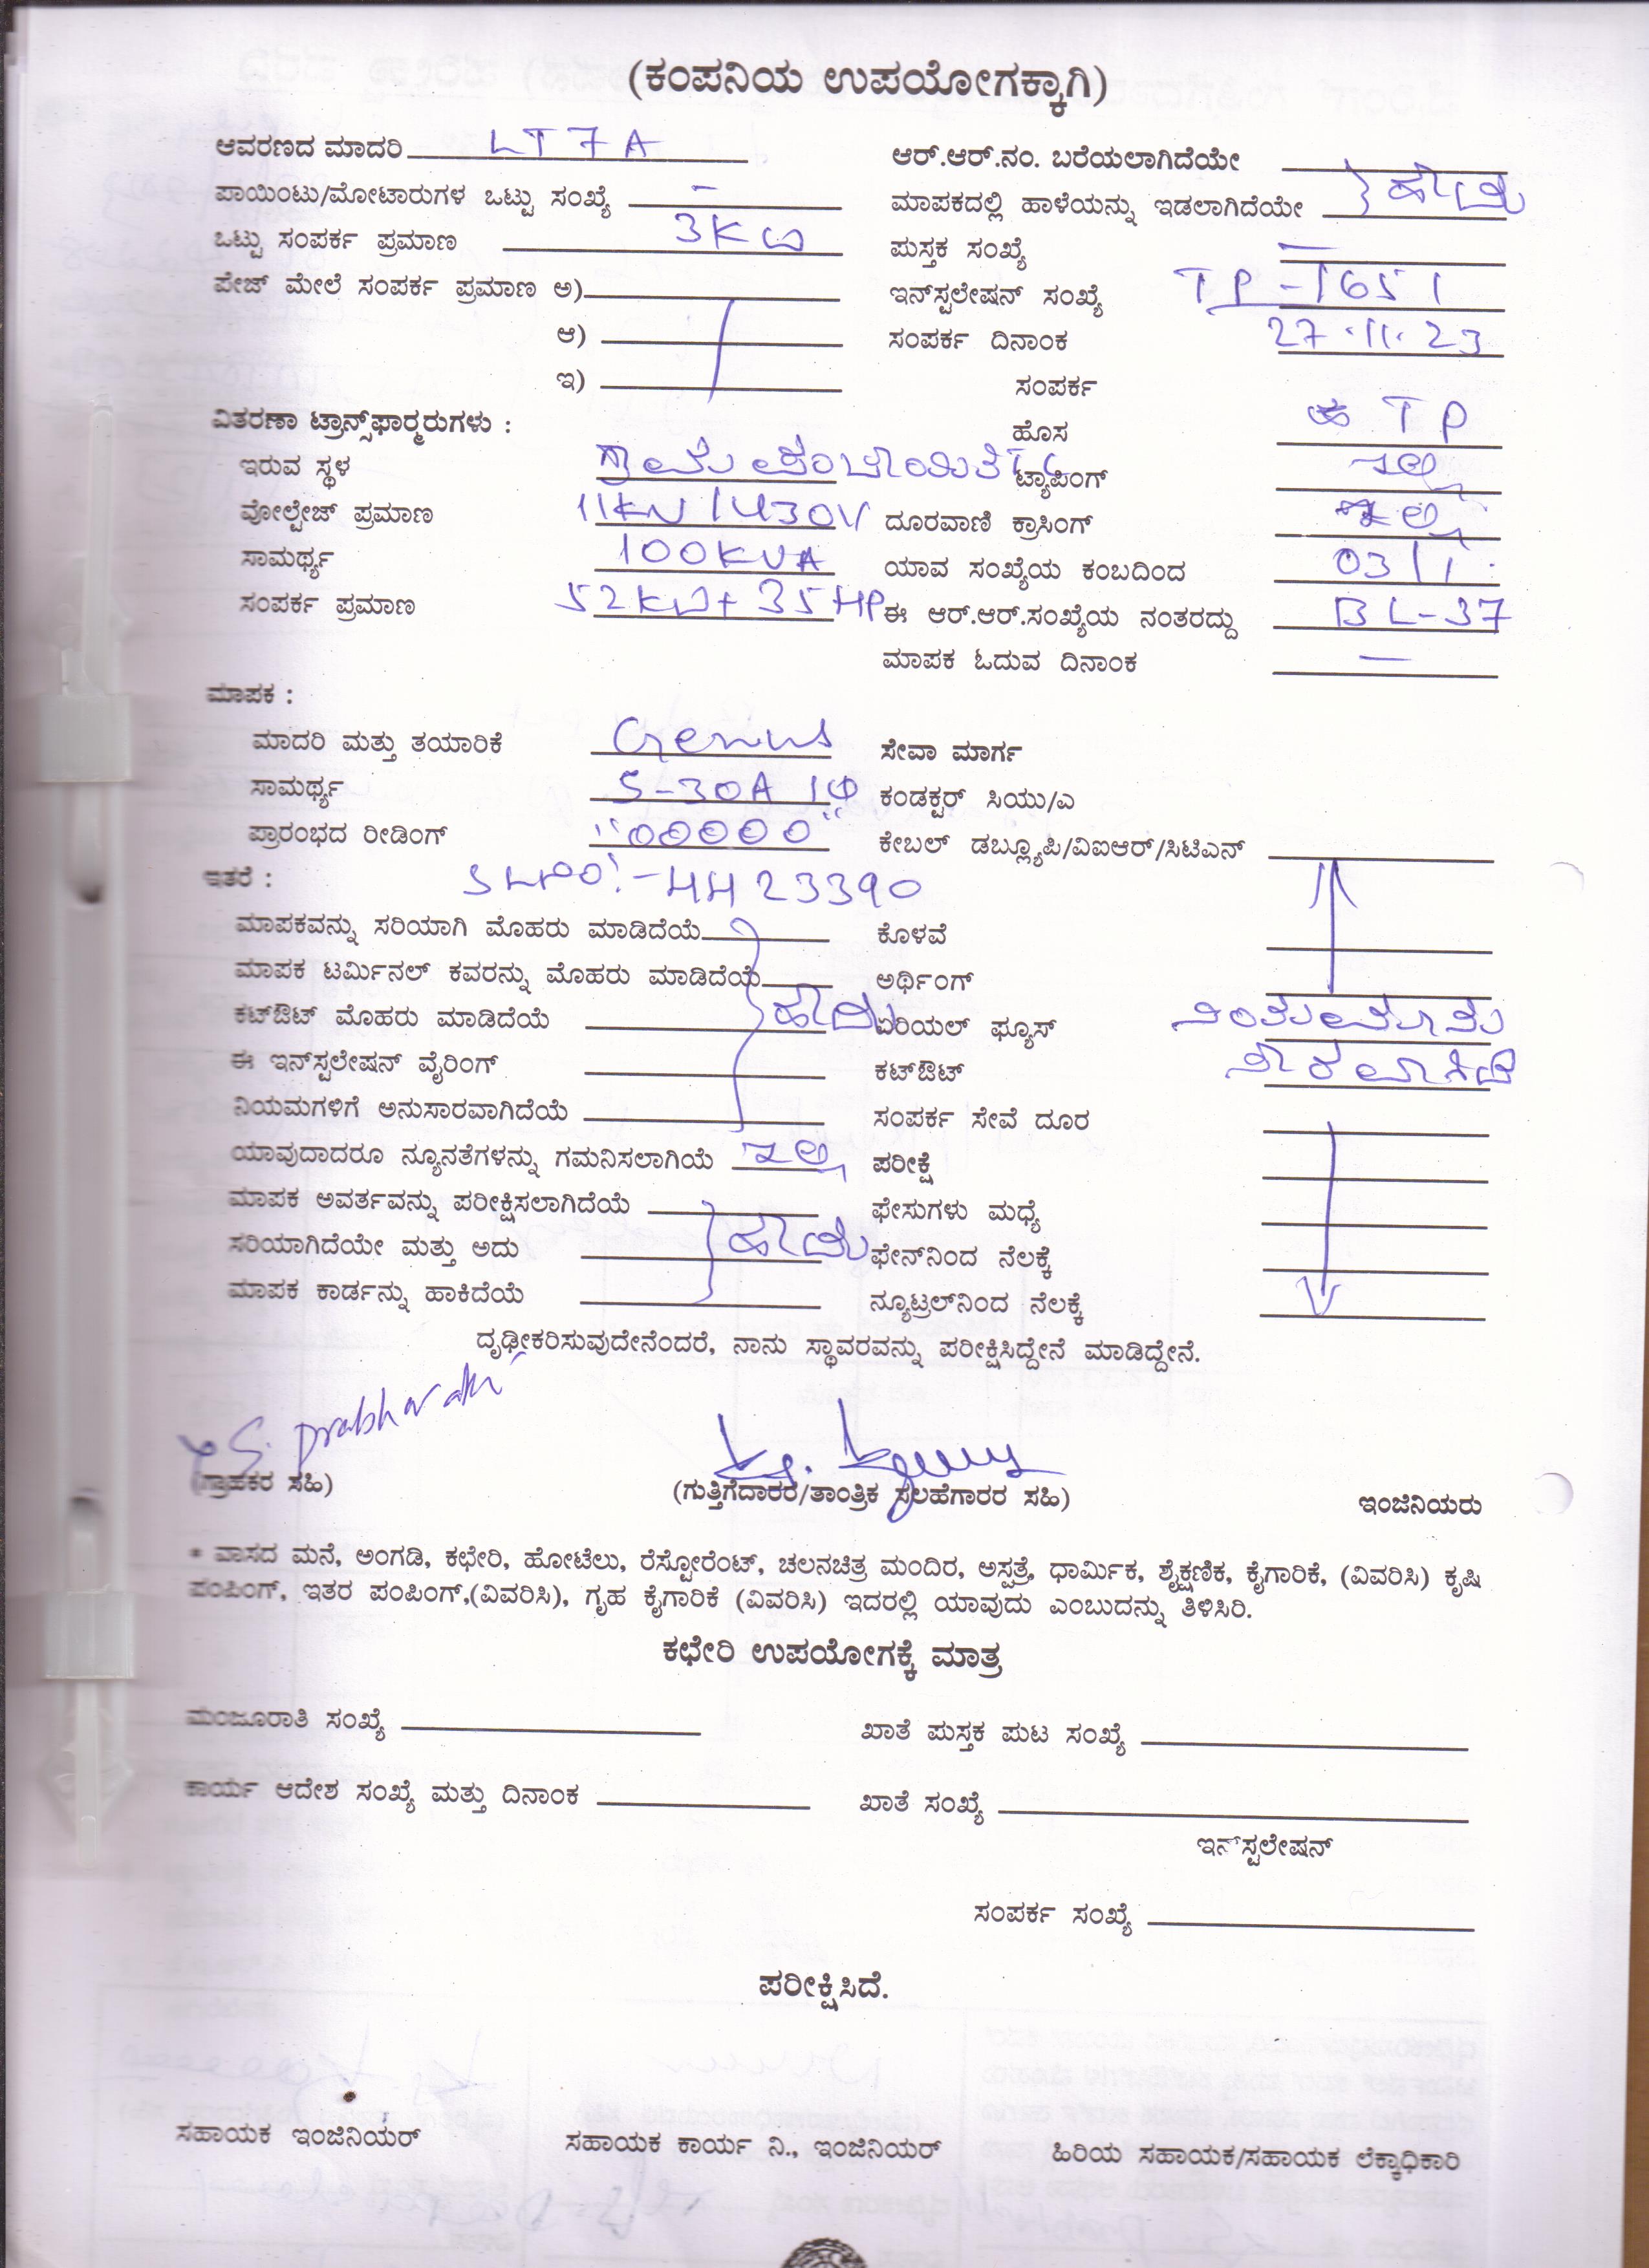 (ಕಂಪನಿಯ ಉಪಯೋಗಕ್ಕಾಗಿ)
ಆವರಣದ ಮಾದರಿ LT7A
ಆರ್.ಆರ್.ನಂ. ಬರೆಯಲಾಗಿದೆಯೇ
ಪಾಯಿಂಟು/ಮೋಟಾರುಗಳ ಒಟ್ಟು ಸಂಖ್ಯೆ -
ಮಾಪಕದಲ್ಲಿ ಹಾಳೆಯನ್ನು ಇಡಲಾಗಿದೆಯೇ } ಹೌದು
ಒಟ್ಟು ಸಂಪರ್ಕ ಪ್ರಮಾಣ 3KW
ಪುಸ್ತಕ ಸಂಖ್ಯೆ —
ಪೇಜ್ ಮೇಲೆ ಸಂಪರ್ಕ ಪ್ರಮಾಣ ಅ)
ಇನ್‌ಸ್ಟಲೇಷನ್ ಸಂಖ್ಯೆ TP-1651
ಆ)
ಸಂಪರ್ಕ ದಿನಾಂಕ 27.11.23
ಇ)
ಸಂಪರ್ಕ
ವಿತರಣಾ ಟ್ರಾನ್ಸ್‌ಫಾರ್‍ಮರುಗಳು :
ಹೊಸ TP
ಇರುವ ಸ್ಥಳ ಗ್ರಾಮ ಪಂಚಾಯಿತಿ TC
ಟ್ಯಾಪಿಂಗ್ ಇಲ್ಲ
ವೋಲ್ಟೇಜ್ ಪ್ರಮಾಣ 11KV/430V
ದೂರವಾಣಿ ಕ್ರಾಸಿಂಗ್ ಇಲ್ಲ
ಸಾಮರ್ಥ್ಯ 100KVA
ಯಾವ ಸಂಖ್ಯೆಯ ಕಂಬದಿಂದ 03/1
ಸಂಪರ್ಕ ಪ್ರಮಾಣ 52KW+35HP
ಈ ಆರ್.ಆರ್.ಸಂಖ್ಯೆಯ ನಂತರದ್ದು BL-37
ಮಾಪಕ ಓದುವ ದಿನಾಂಕ —
ಮಾಪಕ :
ಮಾದರಿ ಮತ್ತು ತಯಾರಿಕೆ Genus
ಸೇವಾ ಮಾರ್ಗ
ಸಾಮರ್ಥ್ಯ 5-30A 1φ
ಕಂಡಕ್ಟರ್ ಸಿಯು/ಎ
ಪ್ರಾರಂಭದ ರೀಡಿಂಗ್ "00000"
ಕೇಬಲ್ ಡಬ್ಲ್ಯೂಪಿ/ವಿಐಆರ್/ಸಿಟಿಎನ್
ಇತರೆ : SLNO:-4423390
ಮಾಪಕವನ್ನು ಸರಿಯಾಗಿ ಮೊಹರು ಮಾಡಿದೆಯೆ
ಕೊಳವೆ
ಮಾಪಕ ಟರ್ಮಿನಲ್ ಕವರನ್ನು ಮೊಹರು ಮಾಡಿದೆಯೆ
ಅರ್ಥಿಂಗ್
ಕಟ್‌ಔಟ್ ಮೊಹರು ಮಾಡಿದೆಯೆ ಹೌದು
ಏರಿಯಲ್ ಫ್ಯೂಸ್
ಈ ಇನ್‌ಸ್ಟಲೇಷನ್ ವೈರಿಂಗ್
ಕಟ್‌ಔಟ್
ನಿಯಮಗಳಿಗೆ ಅನುಸಾರವಾಗಿದೆಯೆ
ಸಂಪರ್ಕ ಸೇವೆ ದೂರ
ಯಾವುದಾದರೂ ನ್ಯೂನತೆಗಳನ್ನು ಗಮನಿಸಲಾಗಿಯೆ ಇಲ್ಲ
ಪರೀಕ್ಷೆ
ಮಾಪಕ ಅವರ್ತವನ್ನು ಪರೀಕ್ಷಿಸಲಾಗಿದೆಯೆ
ಫೇಸುಗಳು ಮಧ್ಯೆ
ಸರಿಯಾಗಿದೆಯೇ ಮತ್ತು ಅದು ಹೌದು
ಫೇನ್‌ನಿಂದ ನೆಲಕ್ಕೆ
ಮಾಪಕ ಕಾರ್ಡನ್ನು ಹಾಕಿದೆಯೆ
ನ್ಯೂಟ್ರಲ್‌ನಿಂದ ನೆಲಕ್ಕೆ
ದೃಢೀಕರಿಸುವುದೇನೆಂದರೆ, ನಾನು ಸ್ಥಾವರವನ್ನು ಪರೀಕ್ಷಿಸಿದ್ದೇನೆ ಮಾಡಿದ್ದೇನೆ.
(ಗ್ರಾಹಕರ ಸಹಿ)
(ಗುತ್ತಿಗೆದಾರರ/ತಾಂತ್ರಿಕ ಸಲಹೆಗಾರರ ಸಹಿ)
ಇಂಜಿನಿಯರು
* ವಾಸದ ಮನೆ, ಅಂಗಡಿ, ಕಛೇರಿ, ಹೋಟೆಲು, ರೆಸ್ಟೋರೆಂಟ್, ಚಲನಚಿತ್ರ ಮಂದಿರ, ಅಸ್ಪತ್ರೆ, ಧಾರ್ಮಿಕ, ಶೈಕ್ಷಣಿಕ, ಕೈಗಾರಿಕೆ, (ವಿವರಿಸಿ) ಕೃಷಿ
ಪಂಪಿಂಗ್, ಇತರ ಪಂಪಿಂಗ್,(ವಿವರಿಸಿ), ಗೃಹ ಕೈಗಾರಿಕೆ (ವಿವರಿಸಿ) ಇದರಲ್ಲಿ ಯಾವುದು ಎಂಬುದನ್ನು ತಿಳಿಸಿರಿ.
ಕಛೇರಿ ಉಪಯೋಗಕ್ಕೆ ಮಾತ್ರ
ಮಂಜೂರಾತಿ ಸಂಖ್ಯೆ
ಖಾತೆ ಪುಸ್ತಕ ಪುಟ ಸಂಖ್ಯೆ
ಕಾರ್ಯ ಆದೇಶ ಸಂಖ್ಯೆ ಮತ್ತು ದಿನಾಂಕ
ಖಾತೆ ಸಂಖ್ಯೆ
ಇನ್‌ಸ್ಟಲೇಷನ್
ಸಂಪರ್ಕ ಸಂಖ್ಯೆ
ಪರೀಕ್ಷಿಸಿದೆ.
ಸಹಾಯಕ ಇಂಜಿನಿಯರ್
ಸಹಾಯಕ ಕಾರ್ಯ ನಿ., ಇಂಜಿನಿಯರ್
ಹಿರಿಯ ಸಹಾಯಕ/ಸಹಾಯಕ ಲೆಕ್ಕಾಧಿಕಾರಿ